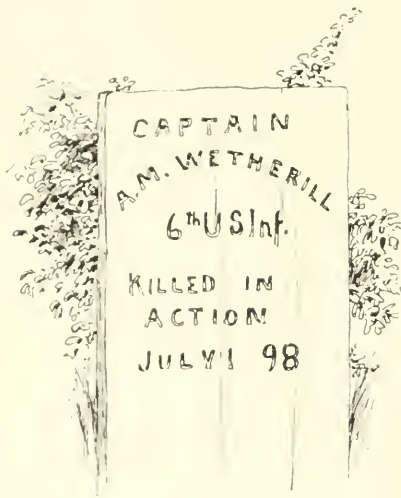 CAPTAIN
A.M. WETHERILL
6th U S Inf.
KILLED IN
ACTION
JULY 1 98